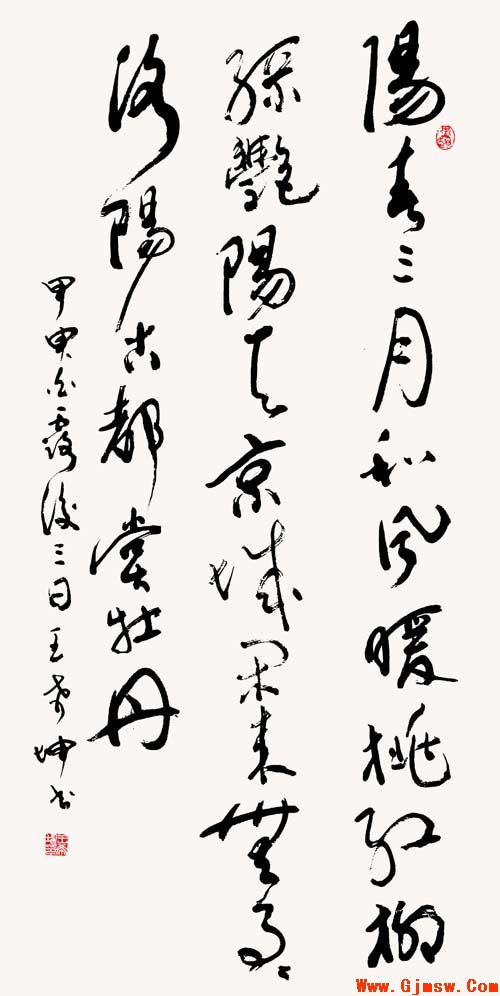 陽春三月和風暖桃紅柳
綠艷陽天京城閑來無事
洛陽古都賞牡丹
甲申白露後三日王坤书
Www.Gjmsw.Com